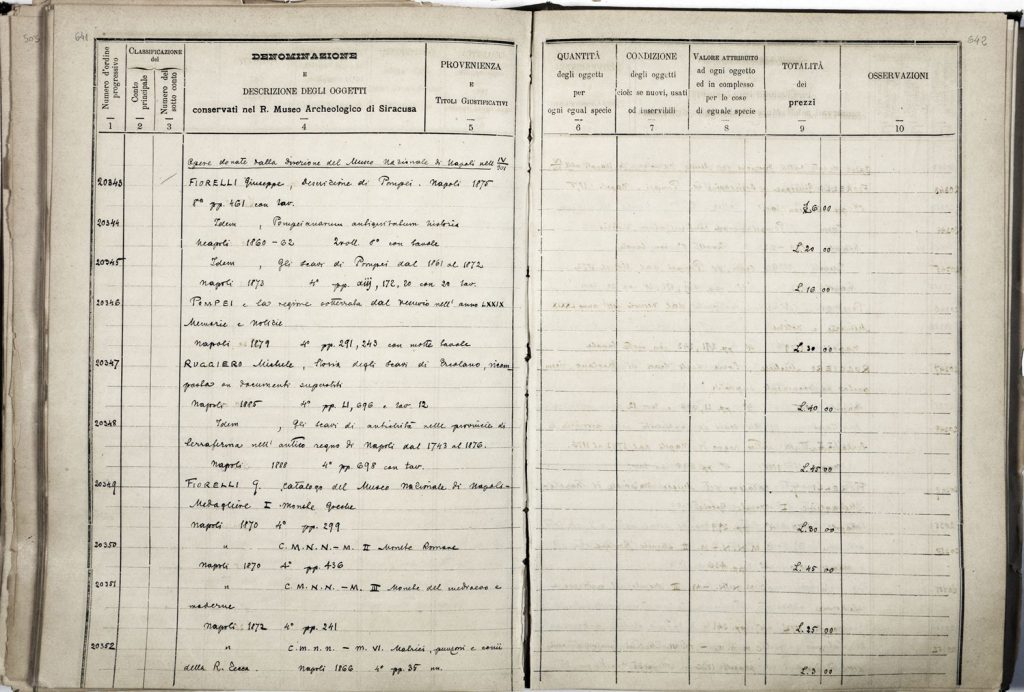 505
641
Numero d'ordine progressivo
CLASSIFICAZIONE del
Conto principale
Numero del sotto conto
DENOMINAZIONE
E
DESCRIZIONE DEGLI OGGETTI
conservati nel R. Museo Archeologico di Siracusa
PROVENIENZA
E
TITOLI GIUSTIFICATIVI
1 2 3 4 5
Opere donate dalla Direzione del Museo Nazionale di Napoli nell'
20343 FIORELLI Giuseppe, Descrizione di Pompei. Napoli 1875
8° pp. 461 con tav.
20344 Idem, Pompeianarum antiquitatum historia
Neapoli 1860-62 2 voll. 8° con tavole
20345 Idem, Gli scavi di Pompei dal 1861 al 1872
Napoli 1873 4° pp. 172, 20 con 20 tav.
20346 POMPEI e la regione sotterrata dal Vesuvio nell'anno LXXIX
Memorie e Notizie
Napoli 1879 4° pp. 291, 243 con molte tavole
20347 RUGGIERO Michele, Storia degli scavi di Ercolano, ricom-
posta su documenti superstiti
Napoli 1885 4° pp. LI, 696 e tav. 12
20348 Idem, Gli scavi di antichità nelle provincie di
terraferma nell'antico regno di Napoli dal 1743 al 1876.
Napoli 1888 4° pp. 698 con tav.
20349 FIORELLI G. Catalogo del Museo Nazionale di Napoli-
Medagliere I Monete Greche
Napoli 1870 4° pp. 299
20350 " C.M.N.N.-M. II Monete Romane
Napoli 1870 4° pp. 436
20351 " C.M.N.N.-M. III Monete del medioevo e
moderne
Napoli 1872 4° pp. 241
20352 " C.M.N.N.-M. VI. Matrici, punzoni e conii
della R. Zecca. Napoli 1866 4° pp. 35
642
QUANTITÀ
degli oggetti
per
ogni egual specie
CONDIZIONE
degli oggetti
cioè se nuovi, usati
od inservibili
VALORE ATTRIBUITO
ad ogni oggetto
ed in complesso
per le cose
di eguale specie
TOTALITÀ
dei
prezzi
OSSERVAZIONI
6 7 8 9 10
L. 6 00
L. 20 00
L. 16 00
L. 30 00
L. 40 00
L. 45 00
L. 30 00
L. 45 00
L. 25 00
L. 3 00